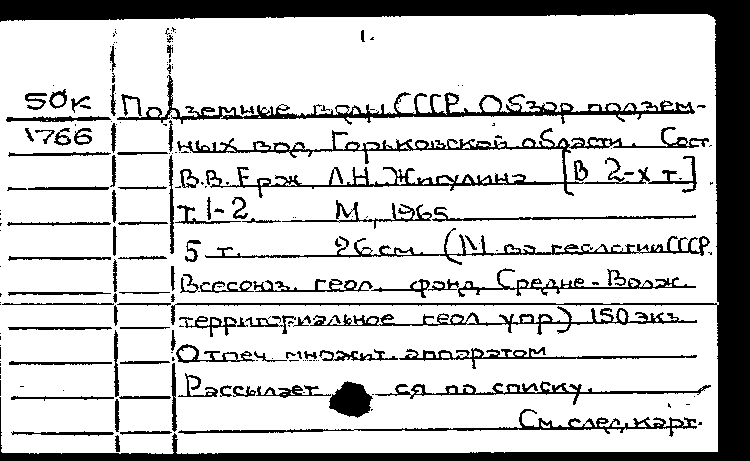 1.
50К Подземные воды СССР. Обзор подзем-
1766 ных вод Горьковской области. Сост.
В.В. Ерж Л.Н. Жигулина [В 2-х т.]
т. 1-2. М., 1965
5 т. 26 см. (М-во геологии СССР.
Всесоюз. геол. фонд. Средне-Волж.
территориальное геол упр) 150 экз.
Отпеч множит. аппаратом
Рассылает ся по списку.
См. след. карт.